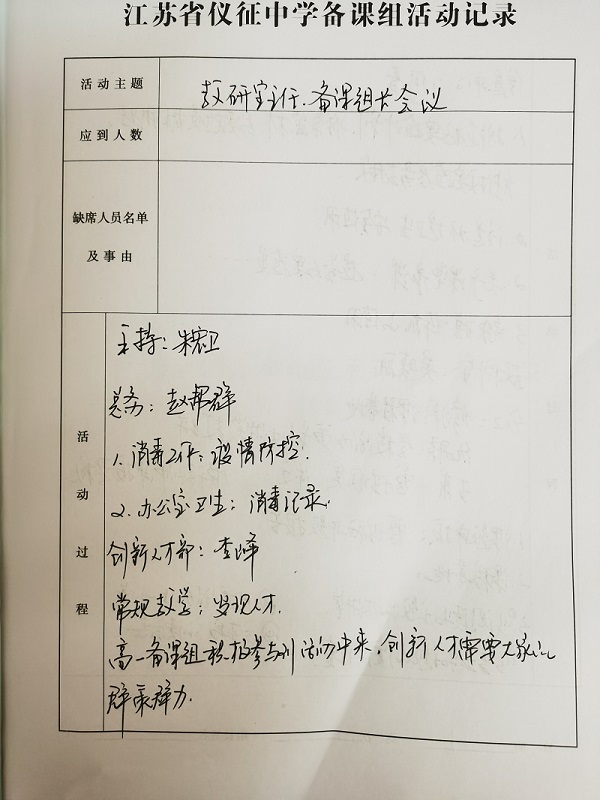 江苏省仪征中学备课组活动记录
活动主题
教研室主任、备课组长会议
应到人数
缺席人员名单
及事由
活动过程
主持：朱宏卫
总务：赵帮群
1. 消毒工作：疫情防控.
2. 办公室卫生：消毒记录.
创新人才部：李峰
常规教学：发现人才.
高一备课组积极参与到活动中来，创新人才需要大家
群策群力.